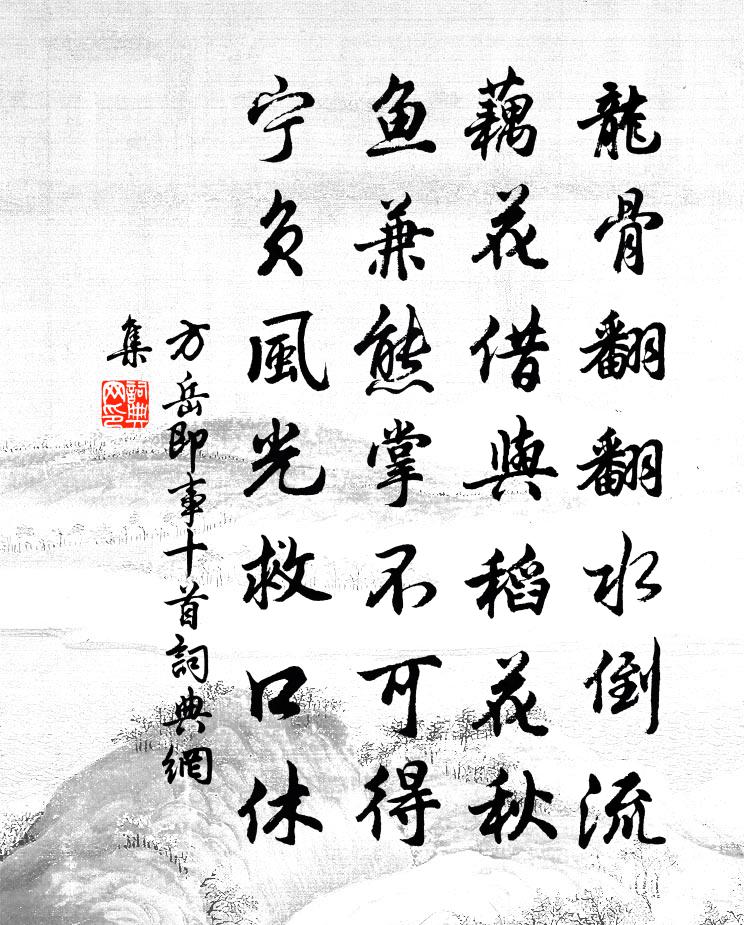 龍骨翻翻水倒流
藕花借與稻花秋
魚兼熊掌不可得
宁負風光救口休
方岳即事十首詞典網
集
詞典網印